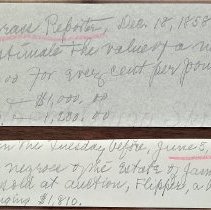 rass Reporter, Dec. 18, 1858
stimate the value of a n
00 for every cent per poun
— $1,000.00
— 1,200.00
n the Tuesday before, June 5,
negroes of the Estate of Jam
sold at auction, Flipper, a b
nging $1,810.